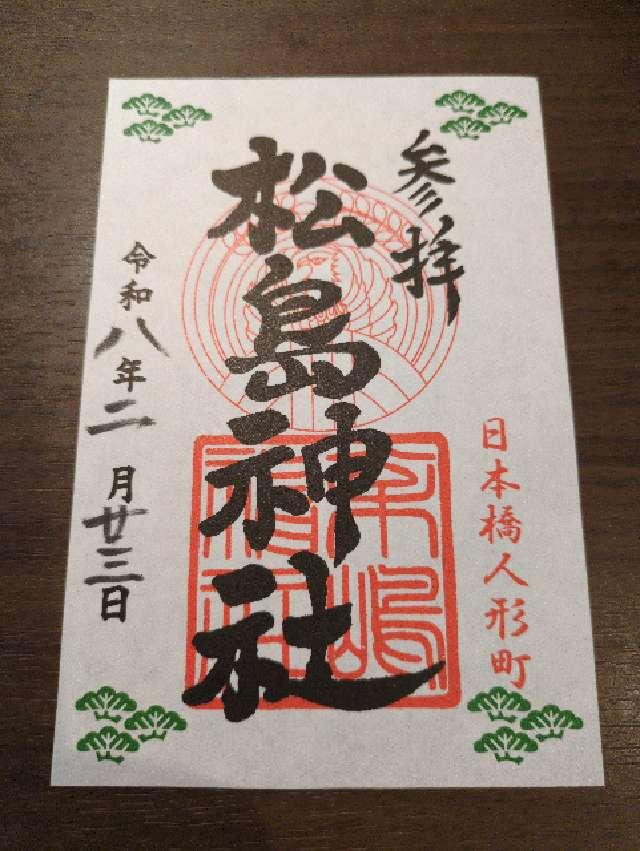 参拝
日本橋人形町
松島神社
令和八年二月廿三日